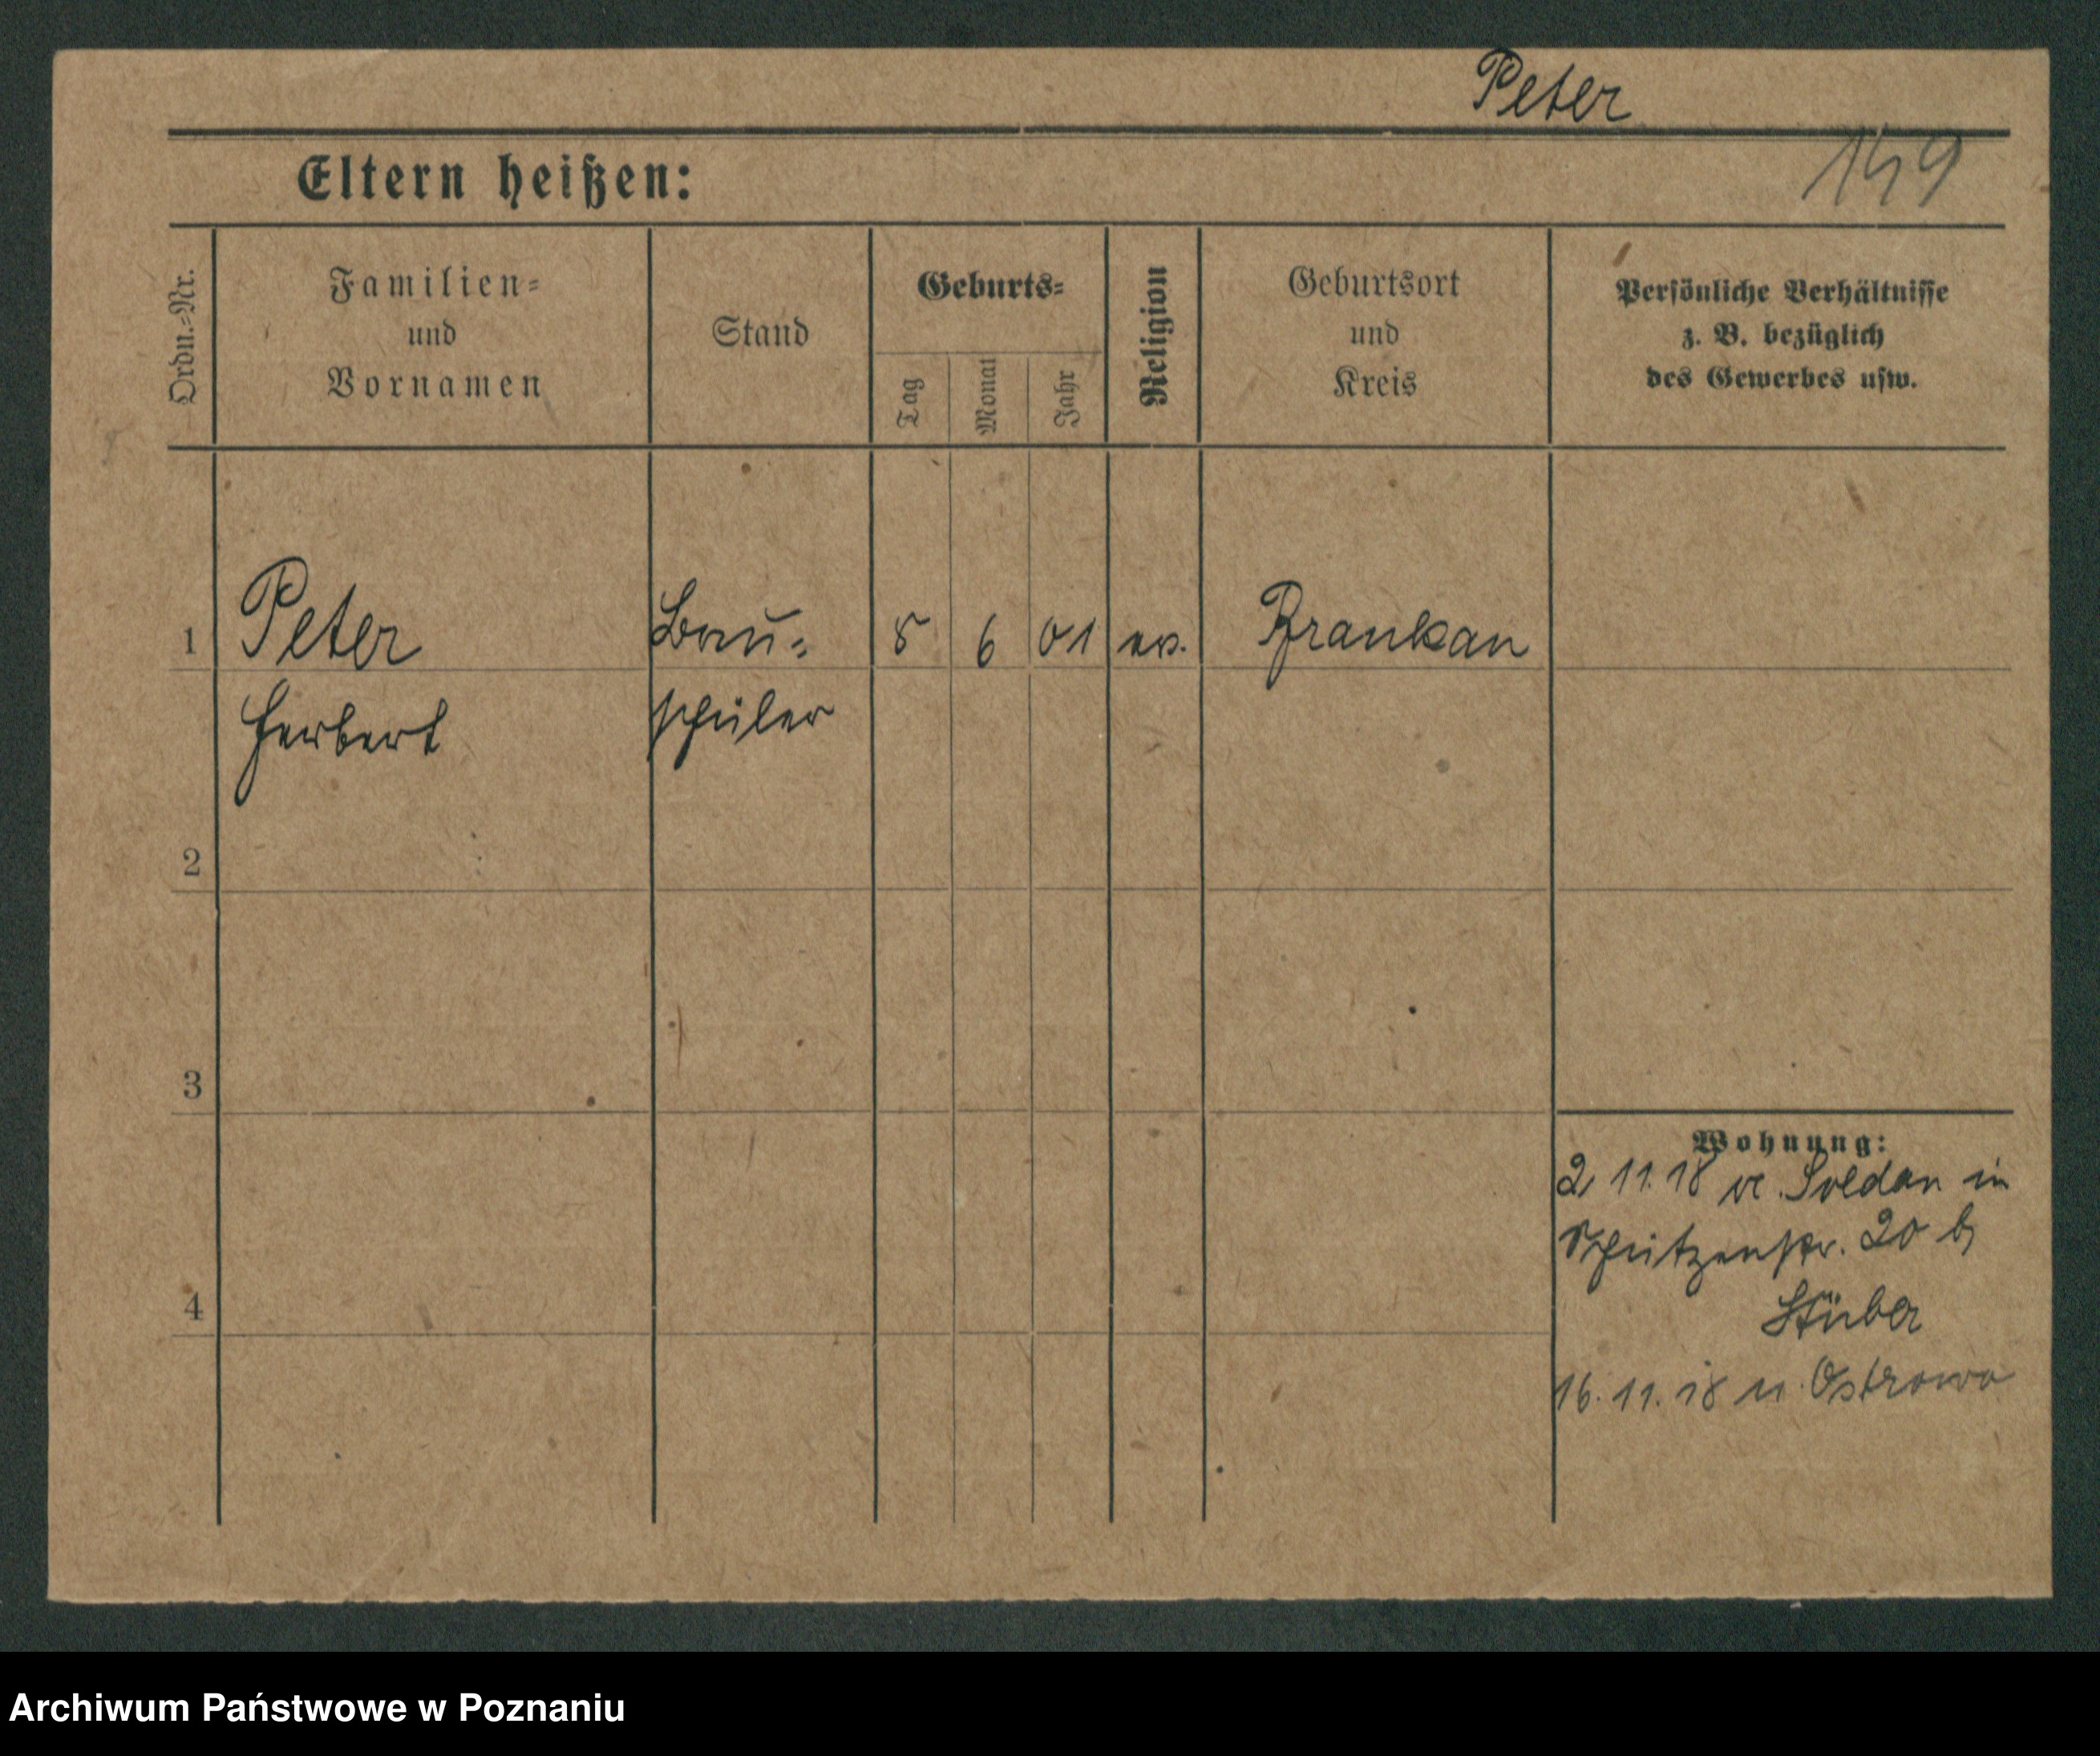 Peter
149
Eltern heißen:
Ordn.-Nr.
Familien-
und
Vornamen
Stand
Geburts-
Tag
Monat
Jahr
Religion
Geburtsort
und
Kreis
Persönliche Verhältnisse
z. B. bezüglich
des Gewerbes usw.
1
Peter
Bau-
8
6
01
ev.
Prankau
Herbert
schüler
2
3
4
Wohnung:
2. 11. 18 v. Soldan in
Schützenstr. 20 b
Stüber
16. 11. 18 n. Ostrowo
Archiwum Państwowe w Poznaniu